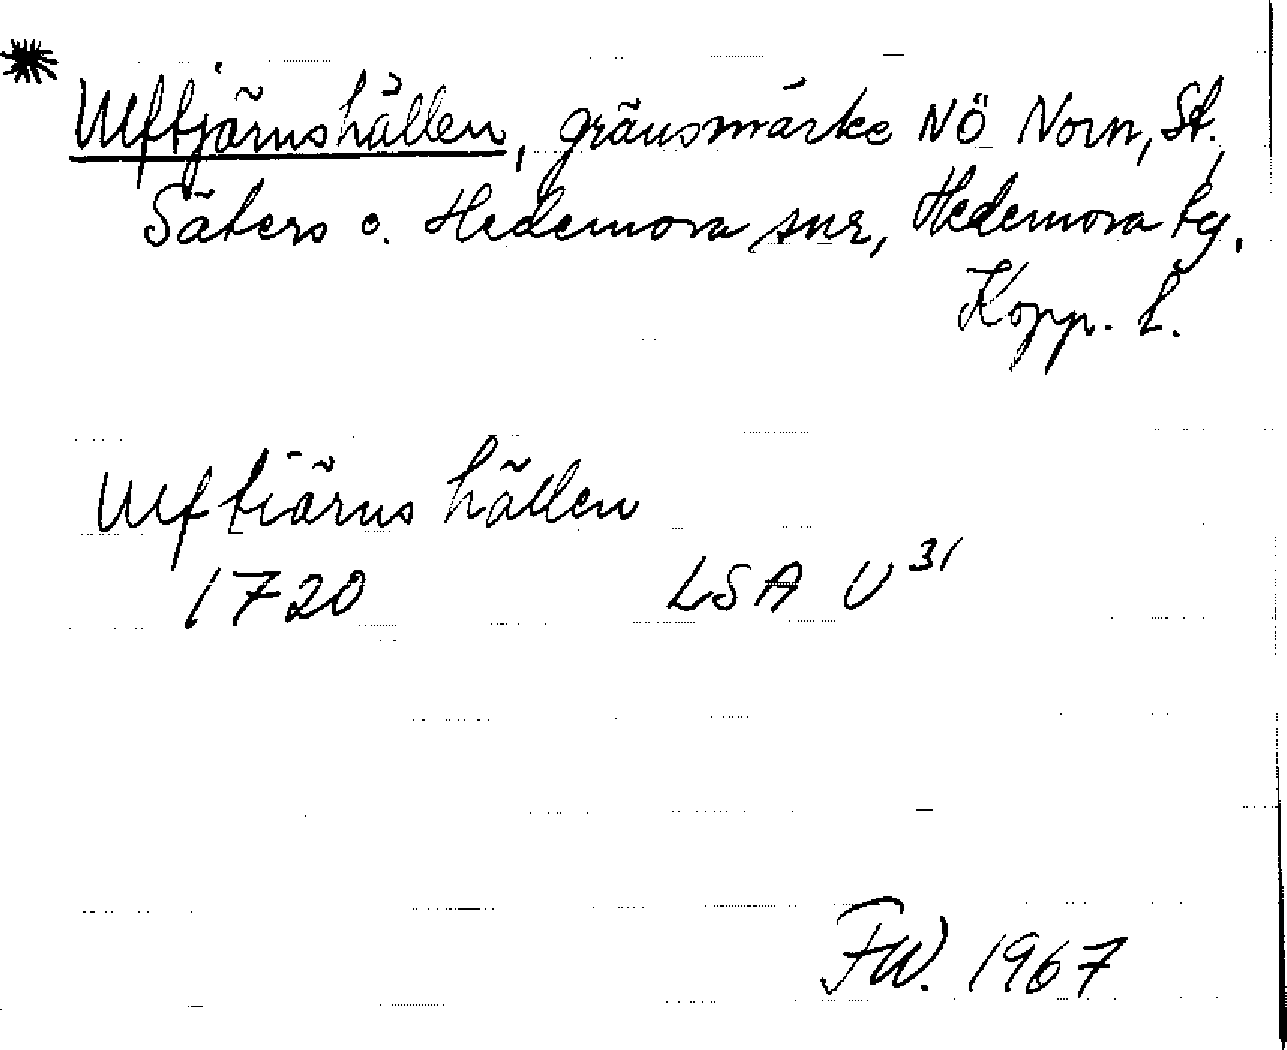 * Ulftjärnshällen, gränsmärke NÖ Norn, St.
Säters o. Hedemora snr, Hedemora tg,
Kopp. l.
Ulftiärns hällen
1720 LSA U31
FW. 1967